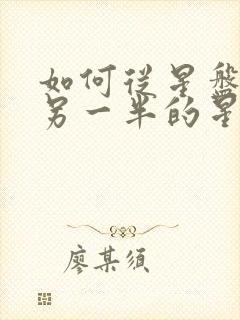 如何从星盘
另一半的星
廖某须